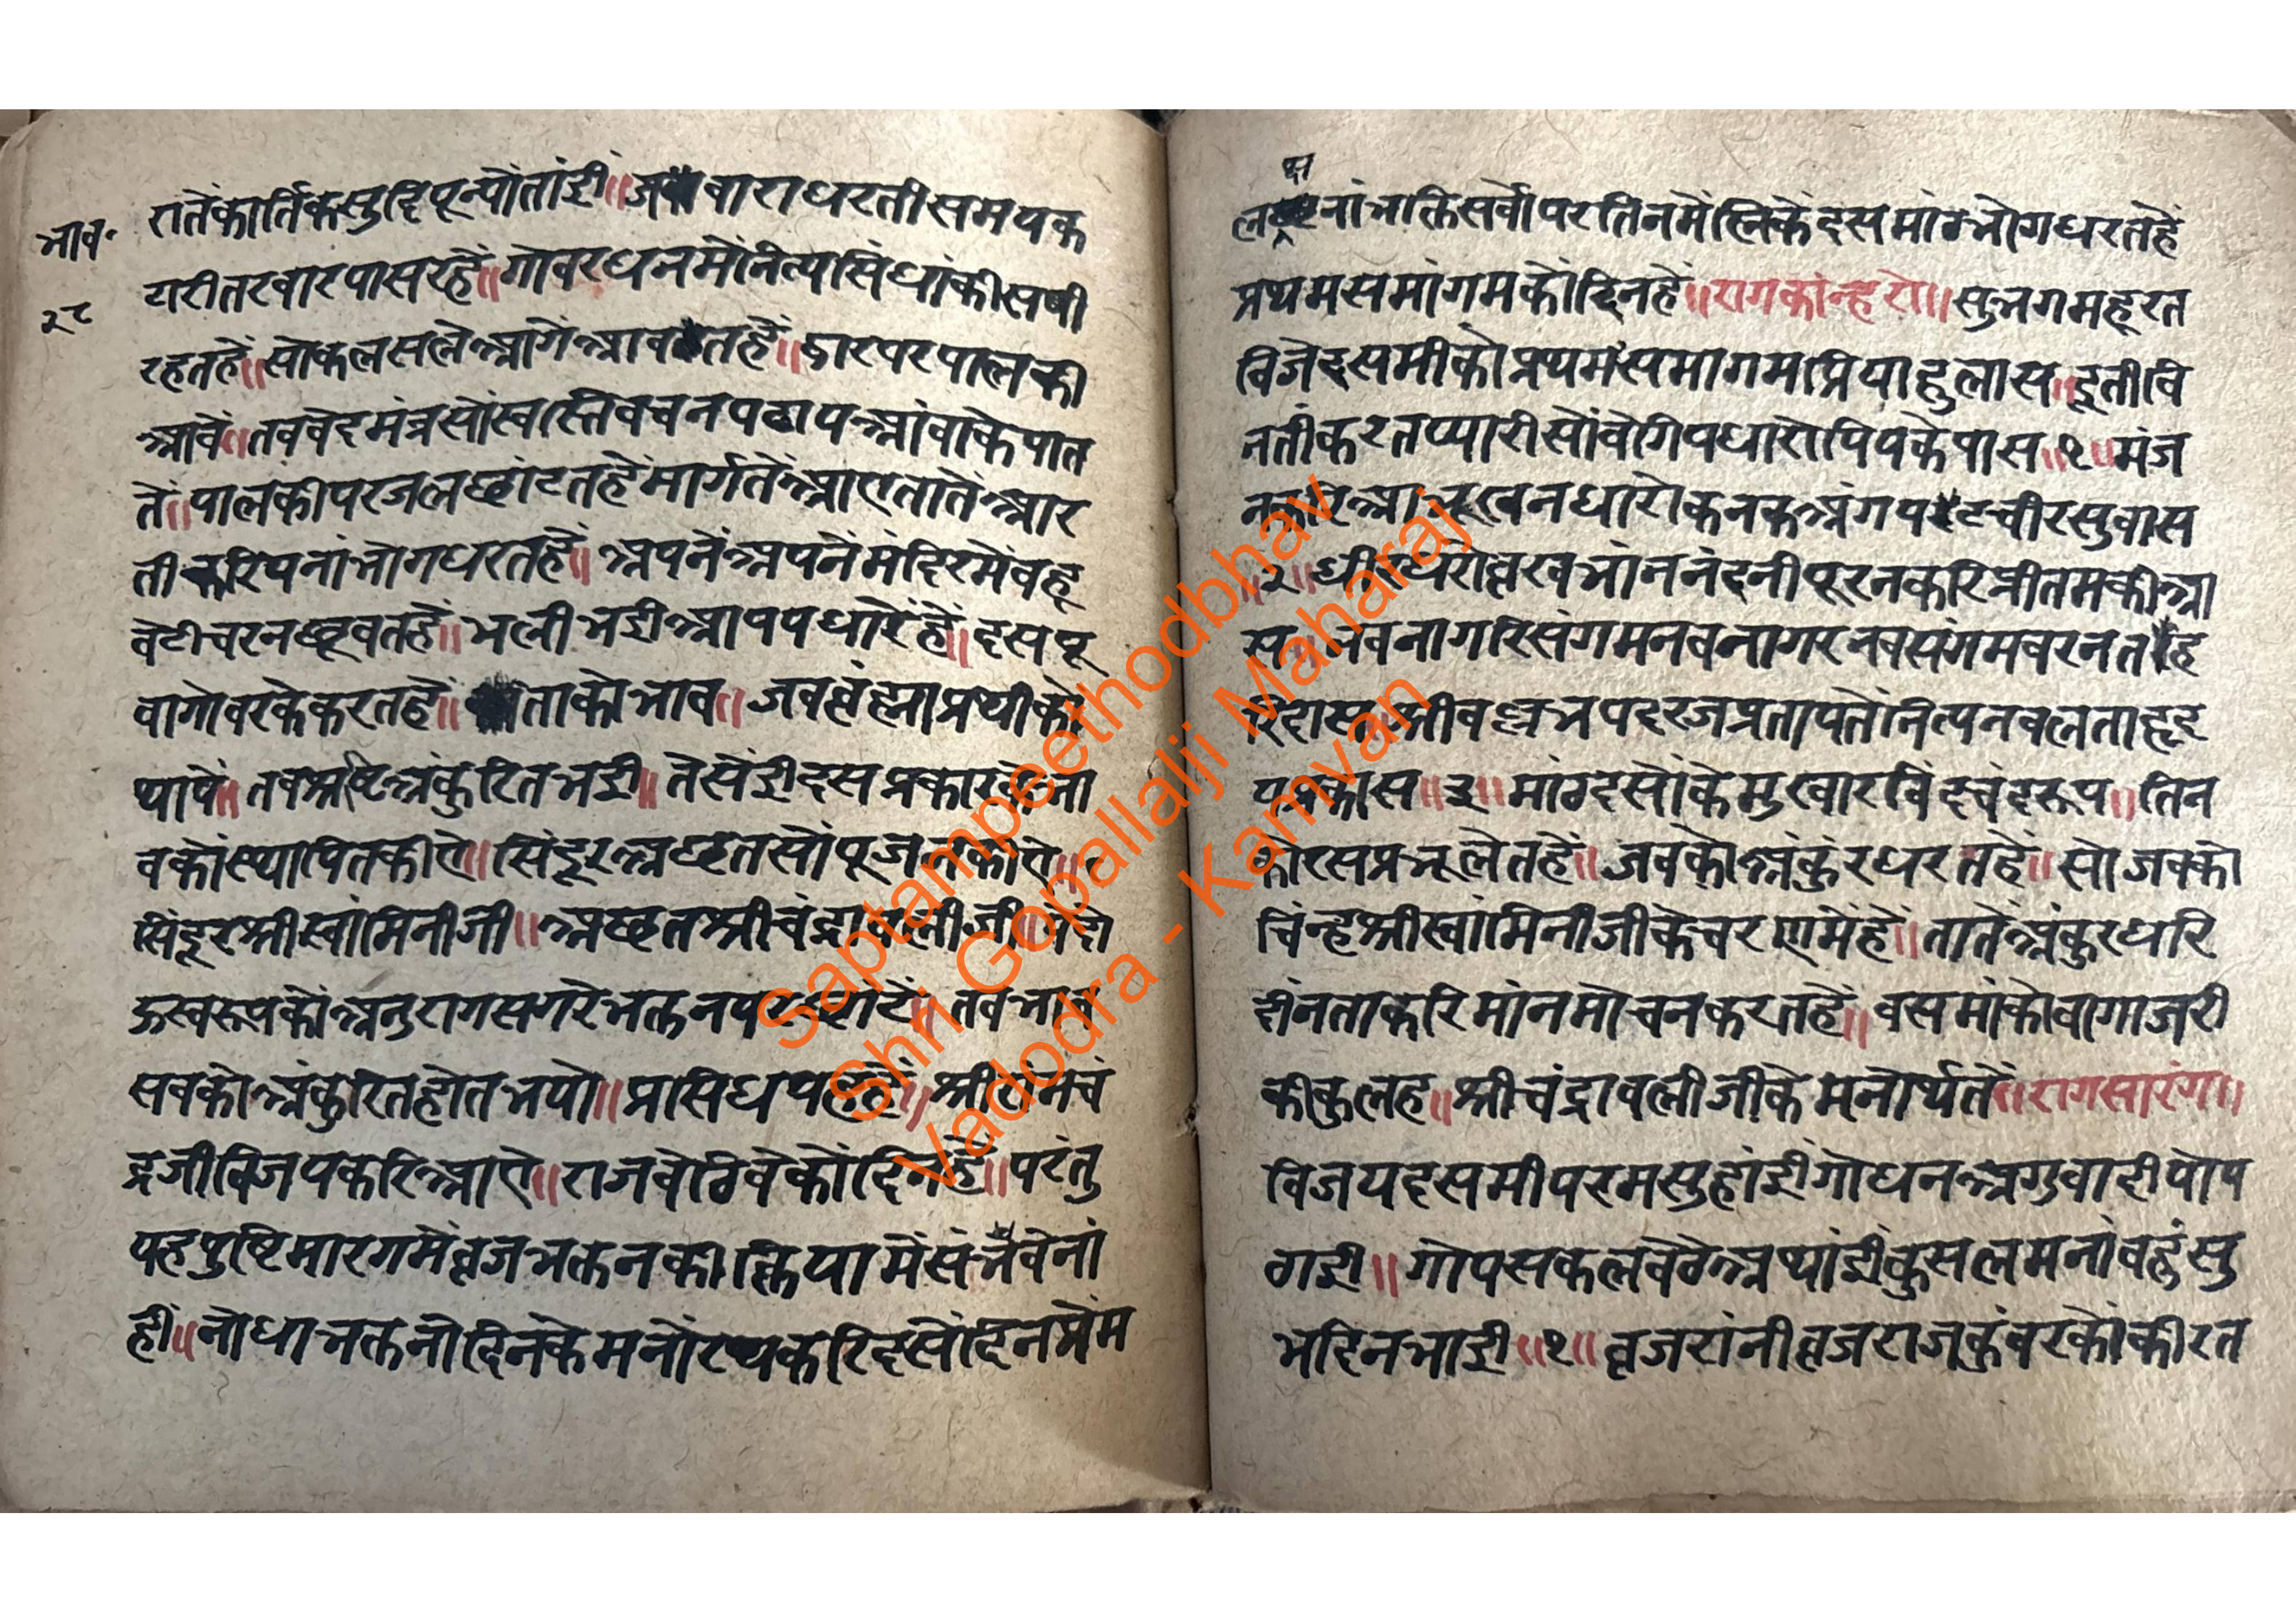 भाव॰
२८
रातेंकार्तिकसुदिपून्योतांई॥जबवाराधरतीसमयक
टारीतरवारपासरहें॥गोवरधनमोंनित्यसिंघांकीसषी
रहतहें॥सोकलसलेआगेंआवतहें॥द्वारपरपालकी
आवें॥तबवेदमंत्रसोंस्वस्तिवचनपढापआंबाकेपात
तें॥पालकीपरजलछांटतहेंमार्गतेंआएतातेंआर
तीकरिपनांभोगधरतहें॥अपनेंअपनेंमंदिरमेंबहू
बेटीचरनछूवतहें॥भलीभईआपपधारेंहें॥दसपू
वागोवरकेकरतहें॥ताकोभाव॥जबब्रंह्माप्रथीको
थापें॥तबअष्टिअंकुरितभई॥तेसेंईदसप्रकार
वकोंस्थापितकीऐ॥सिंदूरअछतसोंपूजनकीऐ॥
सिंदूरश्रीस्वांमिनीजी॥अछतश्रीचंद्रावलीजी॥
ऊस्वरूपकोंअनुरागसगरेभक्तनपर॥तबभाव
सबकोअंकुरितहोतभयो॥प्रासिधयहहें॥श्रीरांमचं
द्रजीविजयकरिआऐ॥राजबेठिवेकोंदिनहें॥परंतु
यहपुष्टिमारगमेंब्रजभक्तनकीक्रियामेंसंभवेनां
हीं॥नोधाभक्तनोदिनकेमनोरथकरिदसोंदिनप्रेंम
क्ष
लनांभक्तिसर्वोपरतिनमेंस्निकेंदसमांठभोगधरतहें
प्रथमसमांगमकोंदिनहें॥रागकांन्हरो॥सुभगमहूरत
विजेदसमीकोप्रथमसमागमप्रियाहुलास॥दूतीवि
नतींकरतप्यारीसोंवेगिपधारोपियकेपास॥१॥मंज
नकरिआभूषनधारोकनकअंगपटचीरसुवास
॥२॥ब्रखभांननंदनीपूरनकरिप्रीतमकीआ
स॥नवनागरिसंगमनवनागरनवसंगमवरनतहि
रिदास॥श्रीवल्लभपदरजप्रतापतेंनित्यनवलताहृद
यप्रकास॥३॥मांठदसोंकेमुखारविंदचंदरूप॥तिन
कोरसप्रभूलेतहें॥जबकोअंकुंरधरतहें॥सोजवको
चिंन्हश्रीस्वांमिनीजीकेचरणमेंहें॥तातेंअंकुरधरि
दींनताकरिमांनमोचनकरतहें॥वसमांकोवागाजरी
कीकुलह॥श्रीचंद्रावलीजीकेमनोर्थतें॥रागसारंग॥
विजयदसमीपरमसुहांईगोधनअगुवादीपोप
ठाई॥गोपसकलबेठेअथांईकुसलमनांवहुंसु
भदिनभाई॥१॥ब्रजरांनीब्रजराजकुंवरकोंकीरत
Saptampeethodbhav
Shri Gopallalji Maharaj
Vadodra - Kamvan